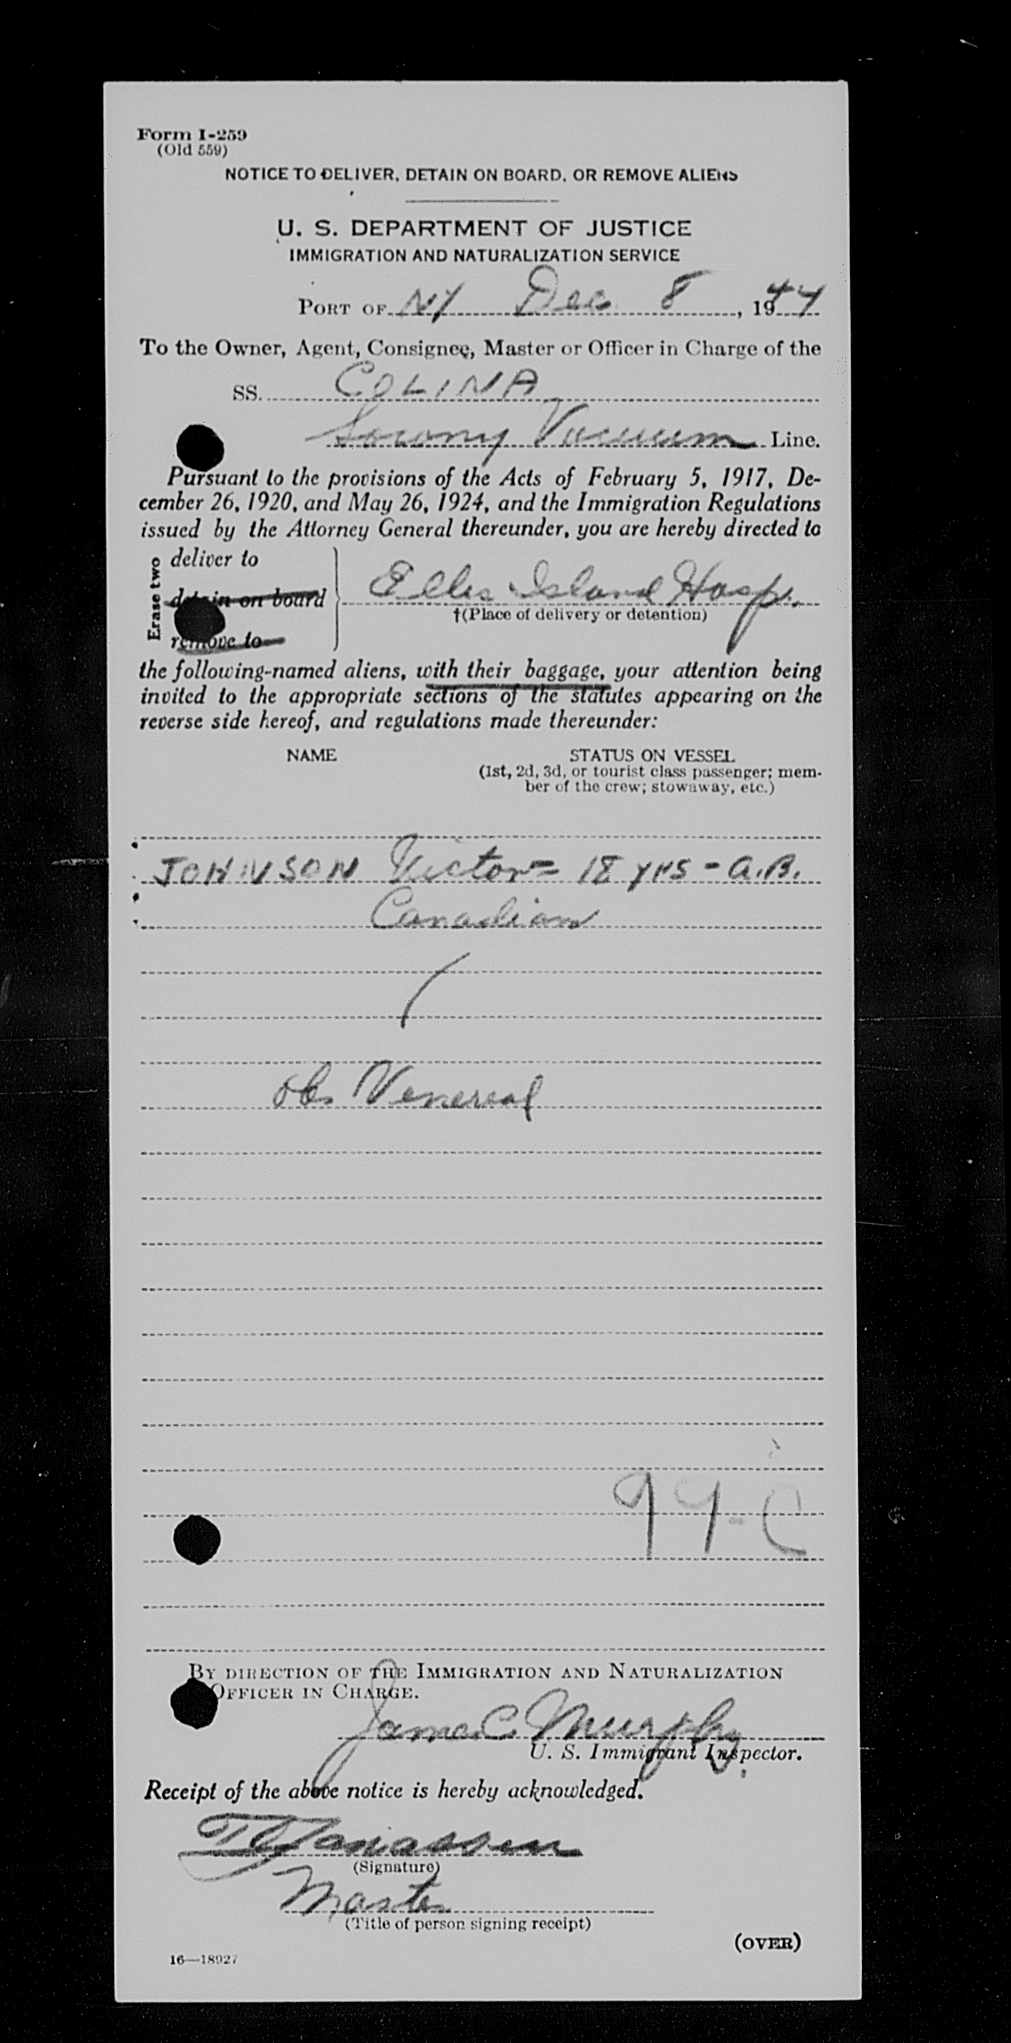 Form I-259
(Old 559)
NOTICE TO DELIVER, DETAIN ON BOARD, OR REMOVE ALIENS
U. S. DEPARTMENT OF JUSTICE
IMMIGRATION AND NATURALIZATION SERVICE
PORT OF NY Dec 8, 1944
To the Owner, Agent, Consignee, Master or Officer in Charge of the
SS. COLINA
Socony Vacuum Line.
Pursuant to the provisions of the Acts of February 5, 1917, De-
cember 26, 1920, and May 26, 1924, and the Immigration Regulations
issued by the Attorney General thereunder, you are hereby directed to
Erase two
deliver to
detain on board
remove to
Ellis Island Hosp.
†(Place of delivery or detention)
the following-named aliens, with their baggage, your attention being
invited to the appropriate sections of the statutes appearing on the
reverse side hereof, and regulations made thereunder:
NAME STATUS ON VESSEL
(1st, 2d, 3d, or tourist class passenger; mem-
ber of the crew; stowaway, etc.)
JOHNSON Victor = 18 yrs - A.B.
Canadian
obs Venereal
99-C
BY DIRECTION OF THE IMMIGRATION AND NATURALIZATION
OFFICER IN CHARGE.
James C Murphy
U. S. Immigrant Inspector.
Receipt of the above notice is hereby acknowledged.
(Signature)
Master
(Title of person signing receipt)
(OVER)
16—18927